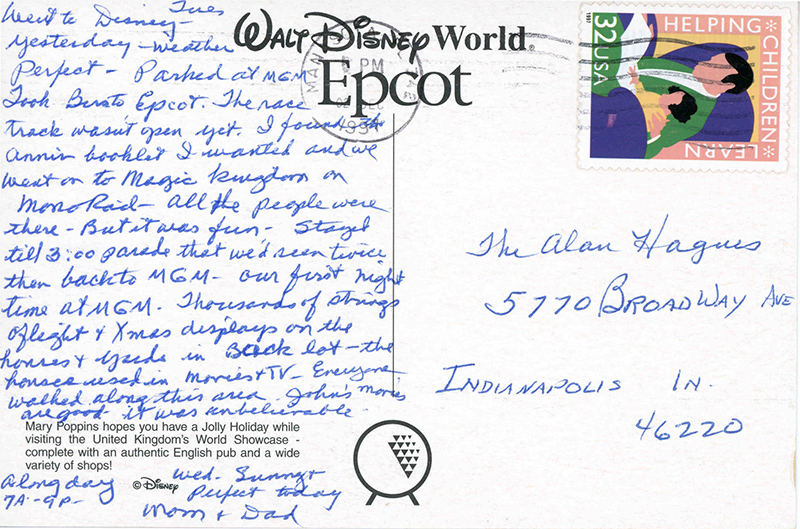 Tues
Went to Disney
yesterday - weather
Perfect - Parked at MGM
Took Bus to Epcot. The race
track wasn't open yet. I found the
Anniv booklet I wanted and we
went on to Magic Kingdom on
MonoRail - All the people were
there - But it was fun - Stayed
till 3:00 parade that we'd seen twice
then back to MGM - our first night
time at MGM. Thousands of strings
of light & Xmas displays on the
houses & yards in Back lot - the
houses used in Movies & TV - Everyone
walked along this area. John's movies
are good it was unbelievable
Mary Poppins hopes you have a Jolly Holiday while
visiting the United Kingdom's World Showcase -
complete with an authentic English pub and a wide
variety of shops!
© Disney
A long day
7A - 9P -
Wed. Sunny &
Perfect today
Mom & Dad
Walt Disney World®
Epcot
PM
DEC
HELPING
CHILDREN
LEARN
32 USA
1997
The Alan Hagues
5770 BROADWAY AVE
INDIANAPOLIS IN.
46220